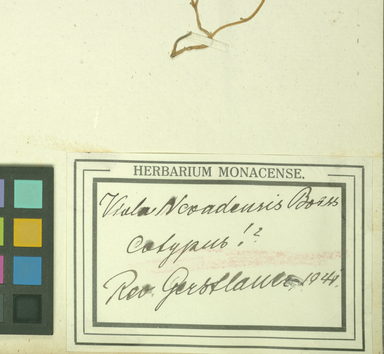 HERBARIUM MONACENSE.
Viola Nevadensis Boiss
Cotypus!?
Rev. Gerstlauer, 1941.